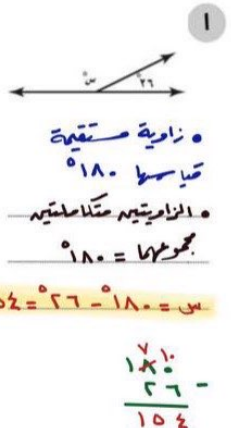 ١
س° ٢٦°
• زاوية مستقيمة
قياسها ١٨٠°
• الزاويتين متكاملتين
مجموعهما = ١٨٠°
س = ١٨٠° − ٢٦° = ٥٤
٧ ١٠
١٨٠
٢٦ −
١٥٤